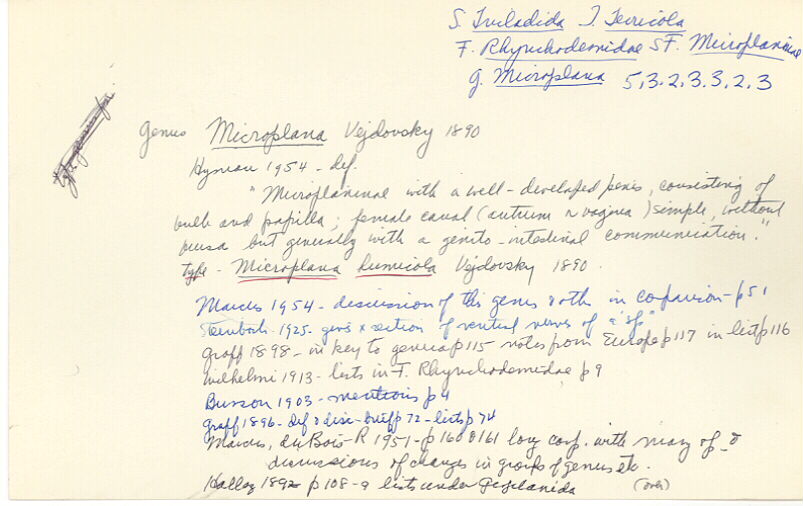 S. Tricladida T. Terricola
F. Rhynchodemidae SF. Microplaninae
g. Microplana 5,3.2,3.3,2,3
Genus Microplana Vejdovsky 1890
Hyman 1954 - def.
"Microplaninae with a well-developed penis, consisting of
bulb and papilla; female canal (antrum or vagina) simple, without
bursa but generally with a genito-intestinal communication."
type - Microplana humicola Vejdovsky 1890.
Marcus 1954 - discussion of this genus & oth in comparison - p51
1925 - gives x section of ventral nerves of a "sp"
Graff 1898 - in key to genera p115 - notes from Europe p117 in list p116
Wilhelmi 1913 - lists in F. Rhynchodemidae p9
Busson 1903 - mentions p4
Graff 1896 - def & disc - brief p 72 - lists p 74
Marcus, du Bois-R 1951 - p160 & 161 long comp. with many
discussions of changes in groups of genus etc.
Hallez 1892 p108-9 lists under
(over)